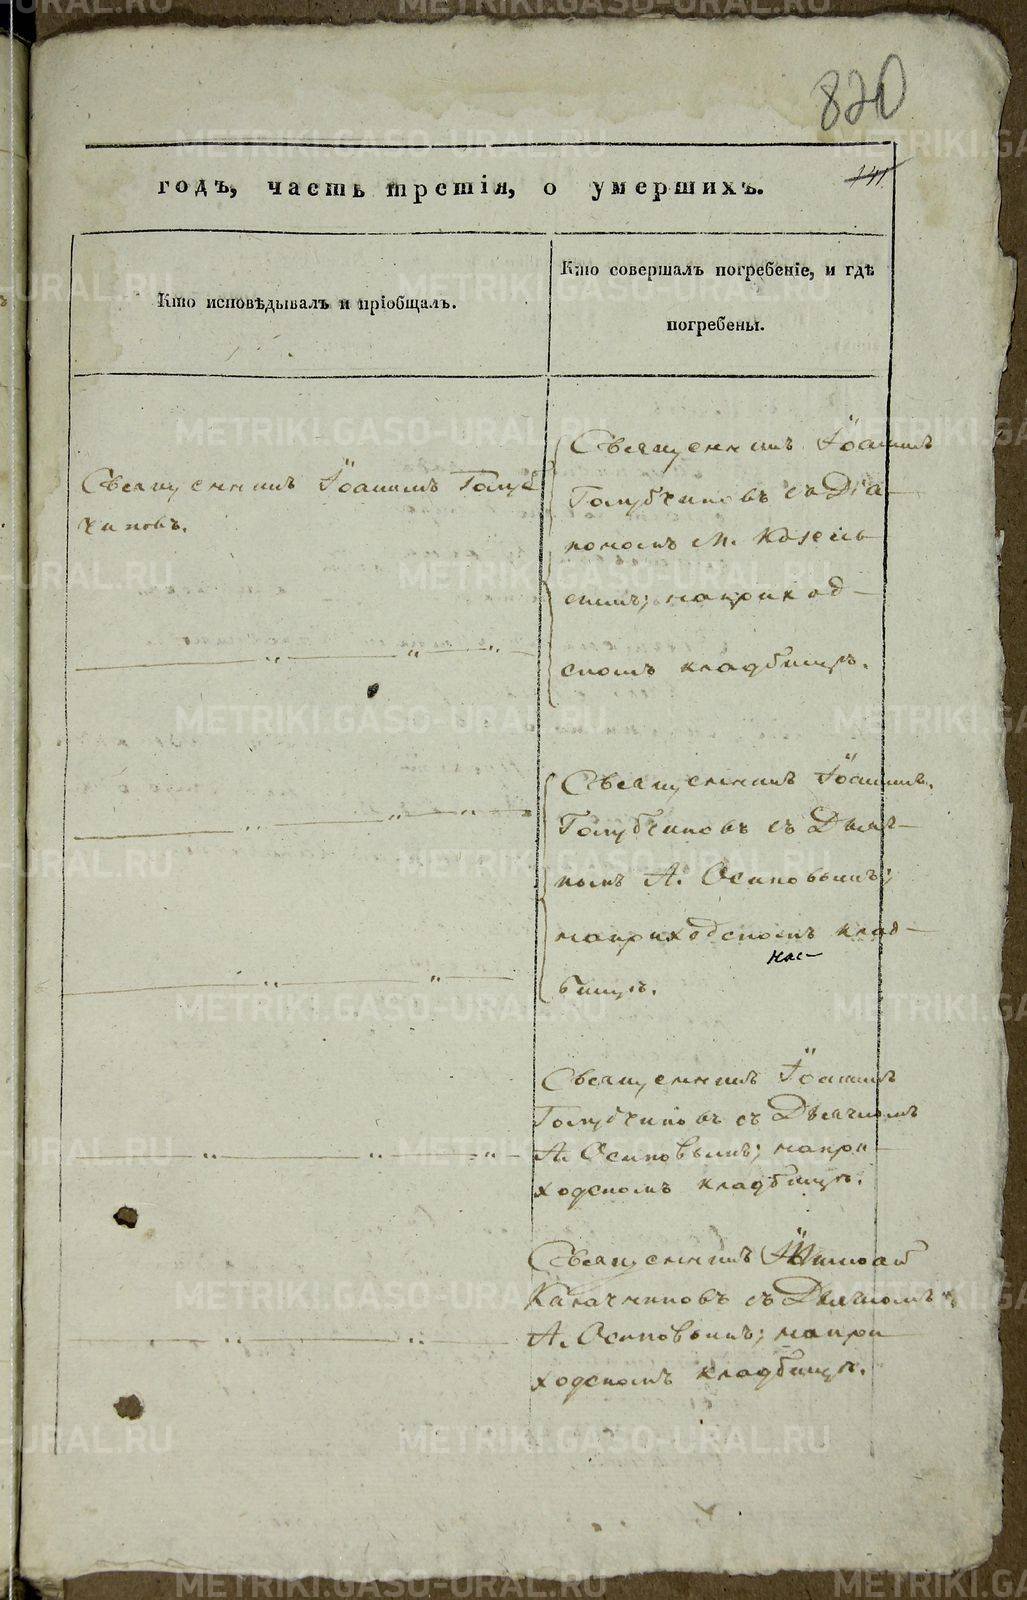 820
годъ, часть третія, о умершихъ.
141
Кто исповѣдывалъ и пріобщалъ.
Кто совершалъ погребеніе, и гдѣ
погребены.
Священникъ Іоаннъ Голуб
чиковъ.
Священникъ Іоаннъ
Голубчиковъ съ Діа-
кономъ М. Козель
скимъ; наприход-
скомъ кладбищѣ.
Священникъ Іоаннъ
Голубчиковъ съ Дьяч-
комъ А. Осиповымъ;
наприходскомъ клад-
бищѣ.
Священникъ Іоаннъ
Голубчиковъ съ Дьячкомъ
А. Осиповымъ; напри-
ходскомъ кладбищѣ.
Священникъ
Калачниковъ съ Дьячкомъ
А. Осиповымъ; напри
ходскомъ кладбищѣ.
METRIKI.GASO-URAL.RU